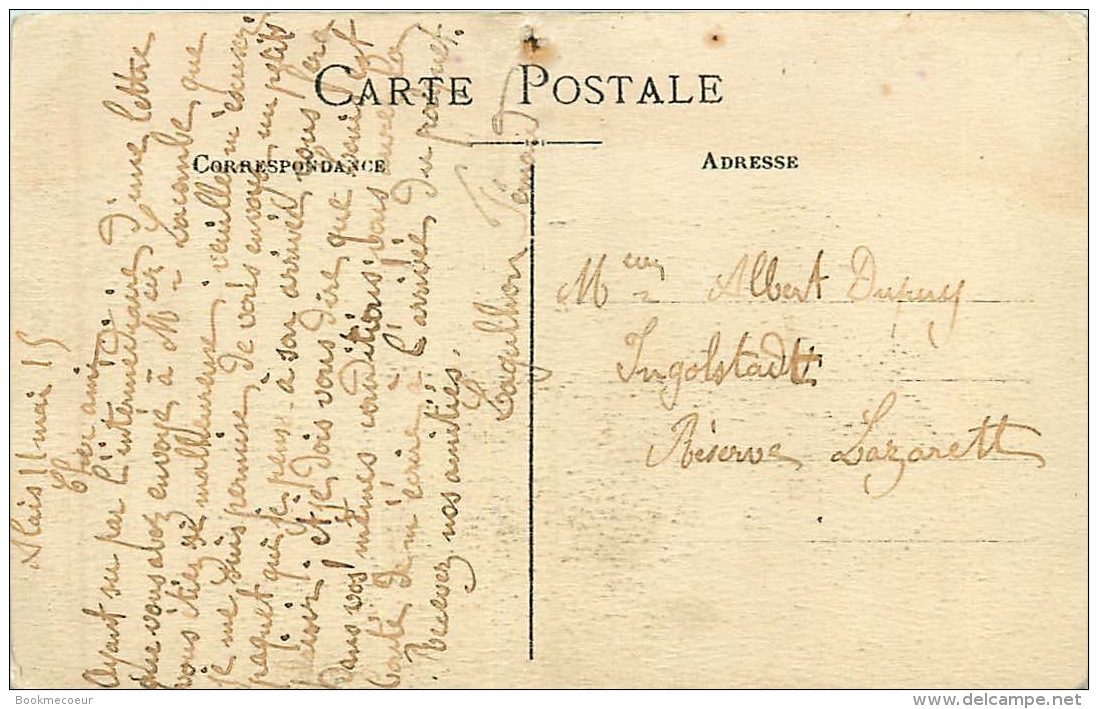 CARTE POSTALE
CORRESPONDANCE
ADRESSE
Alais 11 mai 15
Cher ami
Ayant su par l'intermediaire d'une lettre
que vous avez envoyé à Mr Lacombe que
vous étiez si malheureuse, veuillez m'escuser
je me suis permise, de vous envoyer un petit
paquet qui je pense à son arrivée vous fera
plaisir, et je dois vous dire que mari est
dans vos mêmes conditions; vous aurez la
bonté de m'écrire à l'arrivée du paquet.
Recevez nos amitiés.
Laquilhon Fernand
Mr Albert Dupuy
Ingolstadt
Réserve Lazarett
Bookmecoeur
www.delcampe.net